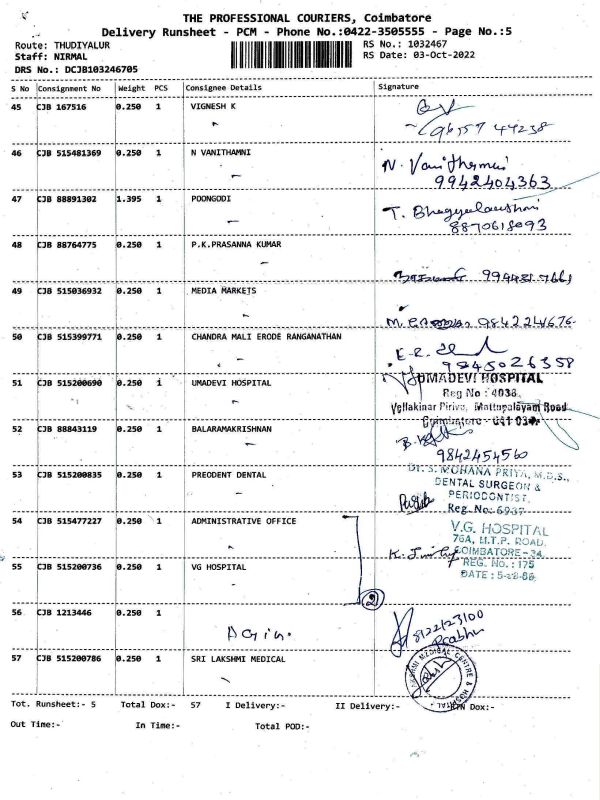 THE PROFESSIONAL COURIERS, Coimbatore
Delivery Runsheet - PCM - Phone No.:0422-3505555 - Page No.:5
Route: THUDIYALUR
RS No.: 1032467
Staff: NIRMAL
RS Date: 03-Oct-2022
DRS No.: DCJB103246705
S No Consignment No Weight PCS Consignee Details Signature
45 CJB 167516 0.250 1 VIGNESH K
96557 44238
46 CJB 515481369 0.250 1 N VANITHAMNI
N. Vanithamani
9942404363
47 CJB 88891302 1.395 1 POONGODI
T. Bhagyalakshmi
8870618093
48 CJB 88764775 0.250 1 P.K.PRASANNA KUMAR
49 CJB 515036932 0.250 1 MEDIA MARKETS
9842224676
50 CJB 515399771 0.250 1 CHANDRA MALI ERODE RANGANATHAN
E-R.
9845026358
51 CJB 515200690 0.250 1 UMADEVI HOSPITAL
UMADEVI HOSPITAL
Reg No : 4038
Vellakinar Pirivu, Mattupalayam Road
Coimbatore - 641 034
52 CJB 88843119 0.250 1 BALARAMAKRISHNAN
9842454560
53 CJB 515200835 1 PREODENT DENTAL
0.250
Dr. S. MOHANA PRIYA, M.D.S.,
DENTAL SURGEON &
PERIODONTIST,
Reg. No: 6937
54 CJB 515477227 0.250 1 ADMINISTRATIVE OFFICE
V.G. HOSPITAL
76A, M.T.P. ROAD,
COIMBATORE - 34.
REG. No. : 175
55 CJB 515200736 0.250 1 VG HOSPITAL
2
56 CJB 1213446 0.250 1
8122123100
Prabhu
57 CJB 515200786 0.250 1 SRI LAKSHMI MEDICAL
LAKSHMI MEDICAL CENTRE & HOSPITAL
Tot. Runsheet:- 5 Total Dox:- 57 I Delivery:- II Delivery:- RTN Dox:-
Out Time:- In Time:- Total POD:-